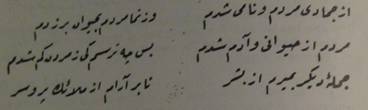 از جمادی مردم و نامی شدم وز نما مردم بحیوان برزدم
مردم از حیوانی و آدم شدم پس چه ترسم کی ز مردن کم شدم
جملهٔ دیگر بمیرم از بشر تا برآرم از ملائک پر و سر